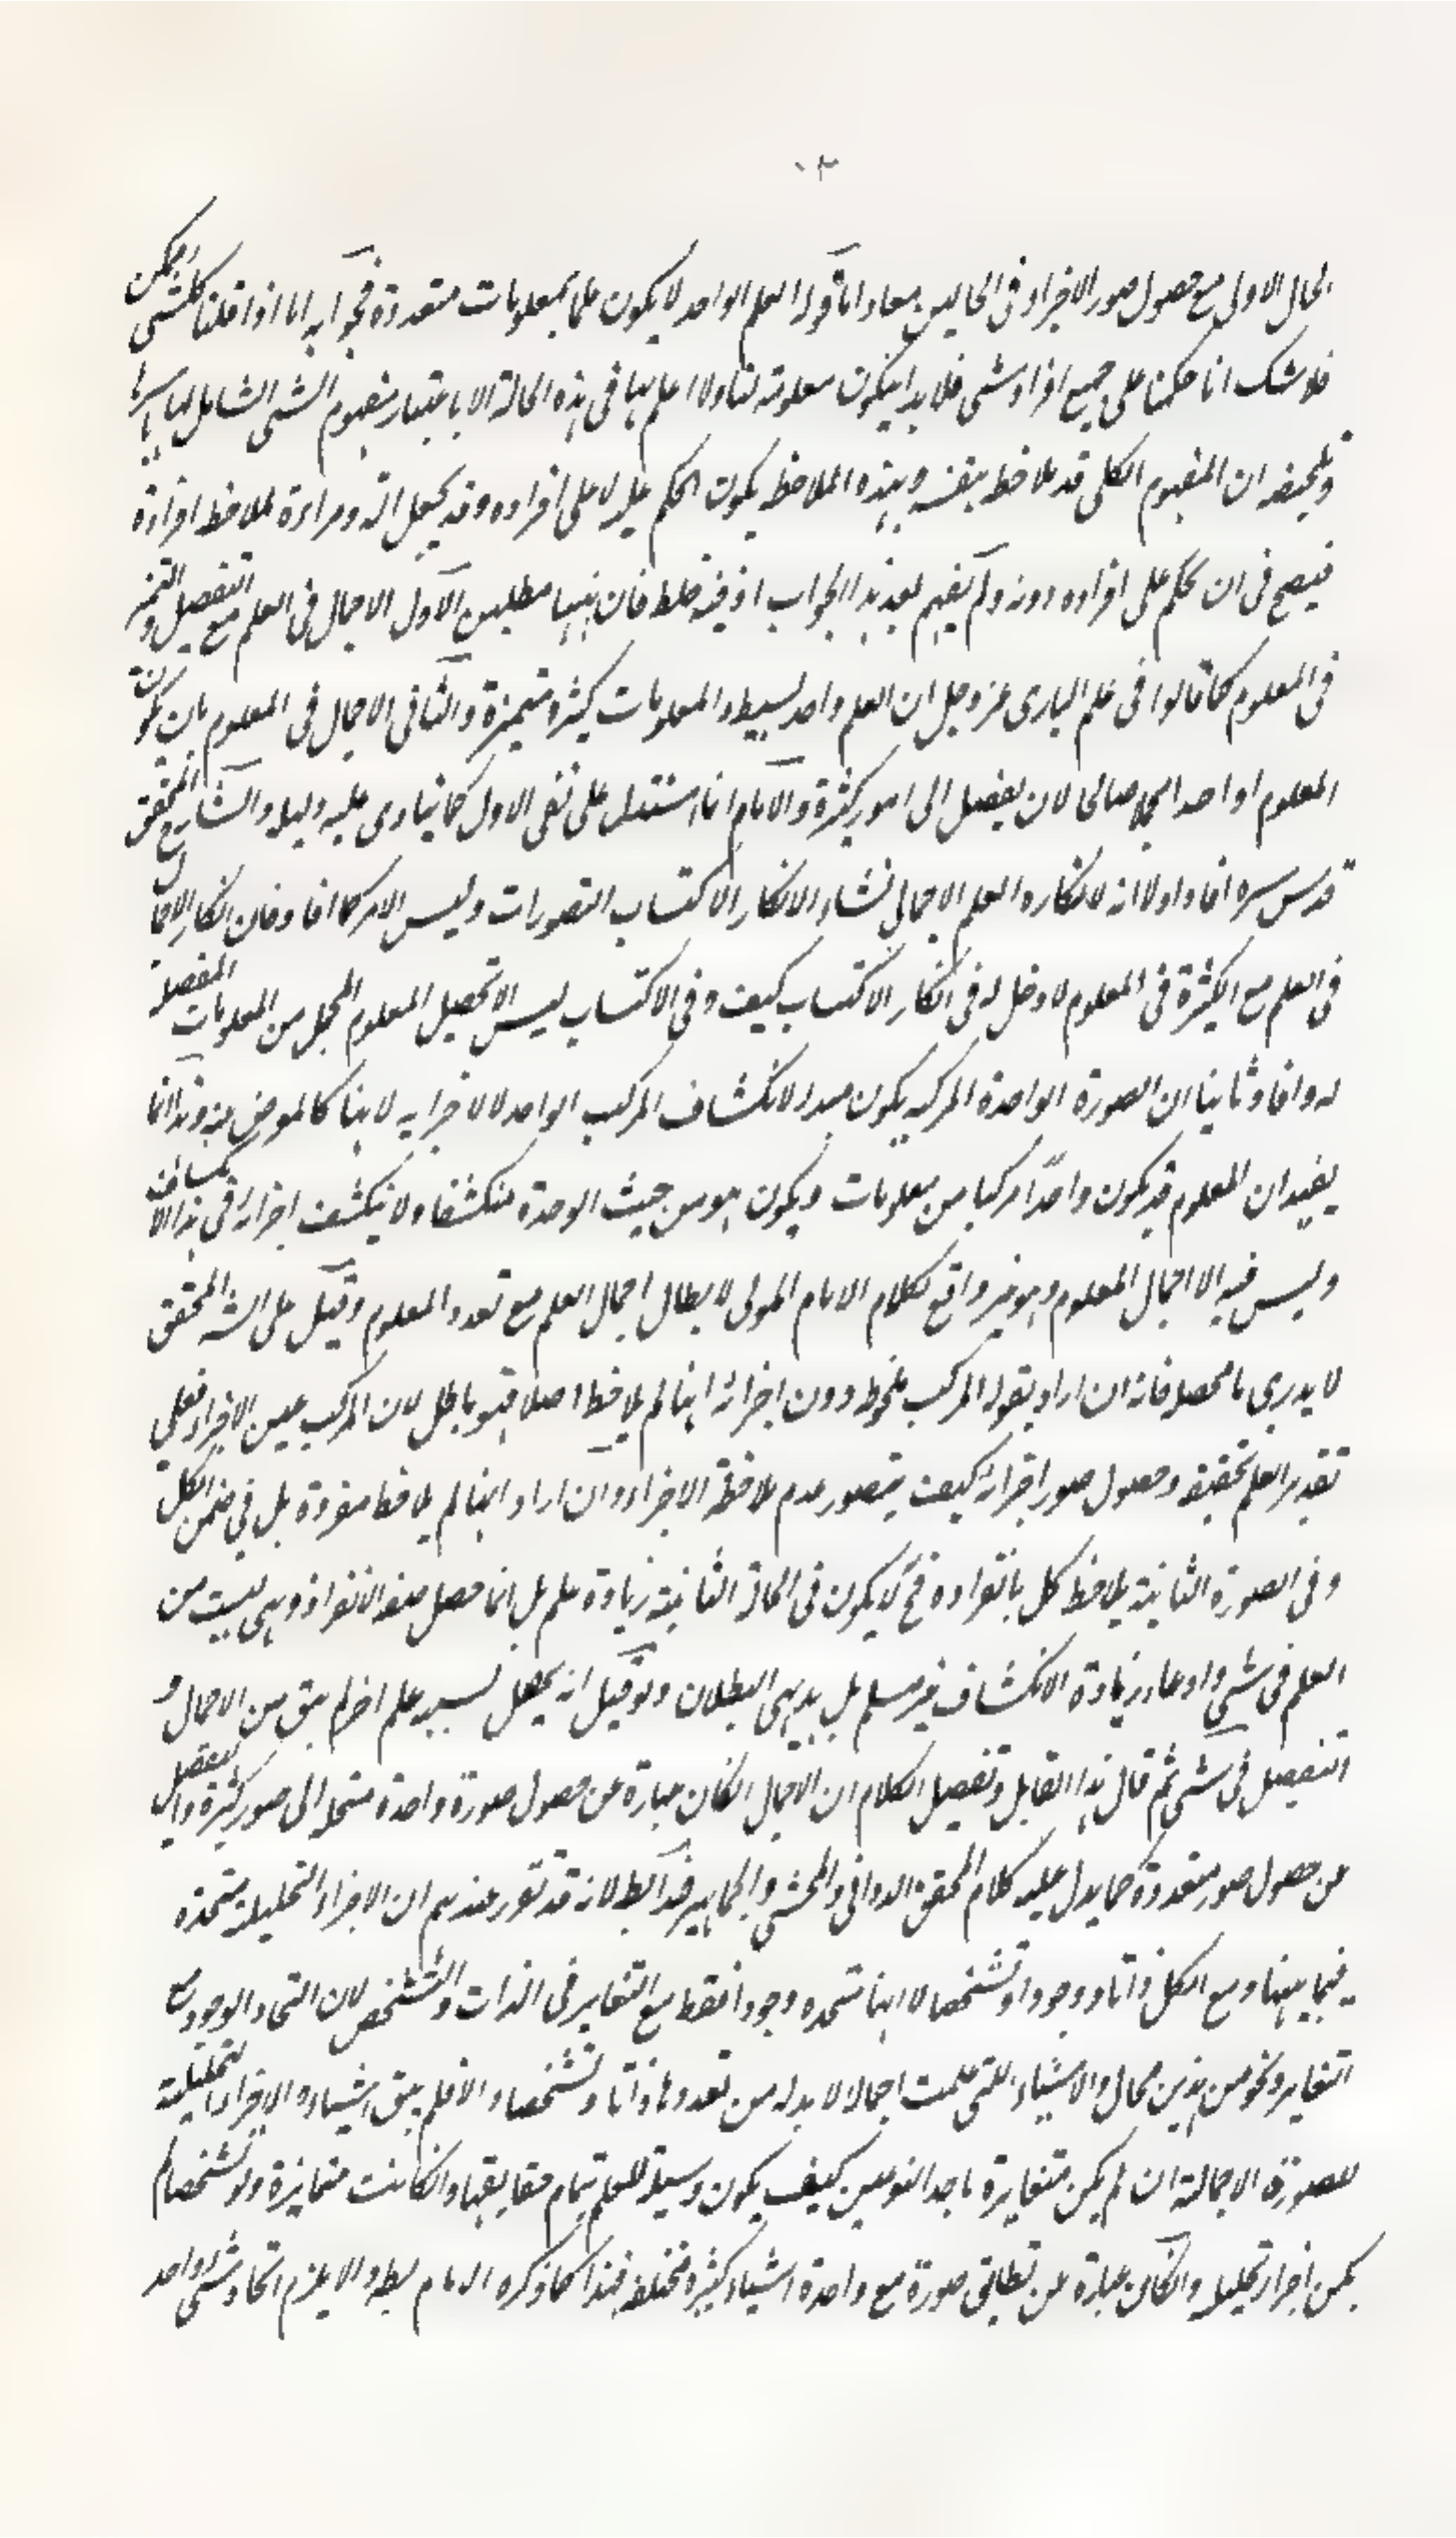 ٣٠
بحال الاول مع حصول صور الاجزاء فى الحالين معا واما قوله العلم الواحد لا يكون علما بمعلومات متعددة فجوابه انا اذا قلنا كل شئ ممكن
فلا شك انا حكمنا على جميع افراد شئ فلا بد ان يكون معلومة لنا ولا علم لنا بها فى هذه الحالة الا باعتبار مفهوم الشئ الشامل لها باسرها
وتلخيصه ان المفهوم الكلى قد يلاحظ بنفسه وبهذه الملاحظة يكون الحكم عليه لا على افراده وقد يجعل آلة ومراءة لملاحظة افراده
فيصح فى ان يحكم على افراده دونه ولم يفهم بعد هذا الجواب اذ فيه خلط فان ههنا مطلبين الاول الاجمال فى العلم مع التفصيل والتميز
فى المعلوم كما قالوا فى علم البارى عز وجل ان العلم واحد بسيط والمعلومات كثيرة متميزة والثانى الاجمال فى المعلوم بان يكون
المعلوم امرا واحدا مجملا صالحا لان يفصل الى امور كثيرة والامام انما استدل على نفى الاول كما ينادى عليه دليله والشارح المحقق
قدس سره افاد اولا انه لانكاره العلم الاجمالى نشاء الانكار لاكتساب التصورات وليس الامر كما افاد فان انكار الاجمال
فى العلم مع الكثرة فى المعلوم لا دخل له فى انكار الاكتساب كيف وفى الاكتساب ليس الا تحصيل المعلوم المجمل من المعلومات المفصلة
له وافاد ثانيا ان الصورة الواحدة المركبة يكون مبدء لانكشاف المركب الواحد لا لاجزايه لانها كالمعرض عنه وهذا انما
يفيد ان المعلوم قد يكون واحدا مركبا من معلومات ويكون هو من حيث الوحدة منكشفا ولا ينكشف اجزائه فى هذا الانكشاف
وليس فيه الا اجمال المعلوم وهو غير واقع لكلام الامام المولى لابطال اجمال العلم مع تعدد المعلوم وقيل على الشارح المحقق
لا يدرى ما محصله فانه ان اراد بقوله المركب ملحوظ دون اجزائه انها لم يلاحظ اصلا فهو باطل لان المركب عين الاجزاء فعلى
تقدير العلم بحقيقته وحصول صور اجزائه كيف يتصور عدم ملاحظة الاجزاء وان اراد انها لم يلاحظ مفردة بل فى ضمن الكل
وفى الصورة الثانية يلاحظ كل بانفراده فح لا يكون فى الحالة الثانية زيادة علم بل انما حصل صفة الانفراد وهى ليست من
العلم فى شئ وادعاء زيادة الانكشاف غير مسلم بل بديهى البطلان ولو قيل انه يحصل بسببه علم اخر لم يبق من الاجمال و
التفصيل فى شئ ثم قال هذا القايل وتفصيل الكلام ان الاجمال انكان عبارة عن حصول صورة واحدة منحلة الى صور كثيرة والتفصيل
عن حصول صور متعددة كما يدل عليه كلام المحقق الدوانى والمحشى والجماهير فهذا باطل لانه قد تقرر عندهم ان الاجزاء التحليلية متحدة
فيما بينها ومع الكل ذاتا ووجودا وتشخصا لا انها متحدة وجودا فقط مع التغاير فى الذات والتشخص لان اتحاد الوجود مع
التغاير ونحو من هذين محال والاشياء التى علمت اجمالا لا بد له من تعددها ذاتا وتشخصا والا فلم يبق اشياء والاجزاء التحليلية
للصورة الاجمالية ان لم يكن متغايرة باحد النوعين كيف يكون وسيلة للعلم بتمام حقايقها وان كانت متمايزة ولو تشخصا لم
يكن اجزاء تحليلية وان كان عبارة عن تطابق صورة مع واحدة اشياء كثيرة مختلفة فهذا كما ذكره الامام بط والا يلزم اتحاد شئ واحد